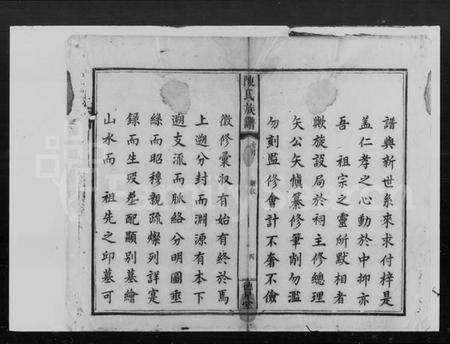 譜與新世系來求付梓是
蓋仁孝之心動於中抑亦
吾 祖宗之靈所默相者
歟旋設局於祠主修總理
矢公矢慎纂修筆削勿濫
勿刻監修會計不奢不儉
陳氏族譜
徵修彙收有始有終於焉
上遡分封而淵源有本下
遡支流而脈絡分明圖垂
絲而昭穆親疏燦列詳寔
錄而生歿葬配顯別墓繪
山水而 祖先之邱墓可